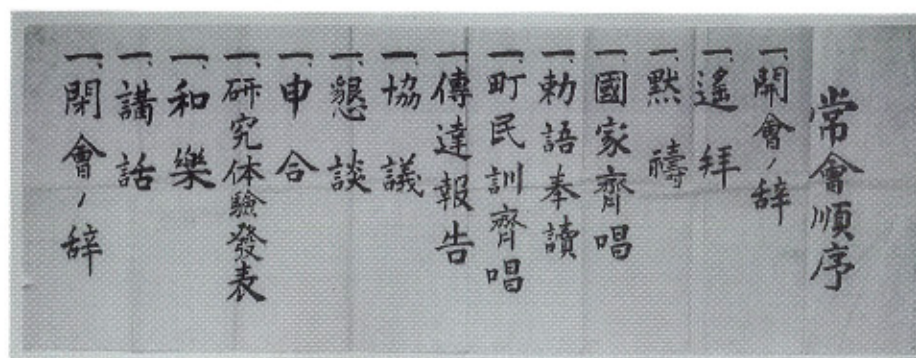 常會順序
一、開會ノ辞
一、遙拜
一、黙禱
一、國家齊唱
一、勅語奉讀
一、町民訓齊唱
一、傳達報告
一、協議
一、懇談
一、申合
一、研究体驗發表
一、和樂
一、講話
一、閉會ノ辞